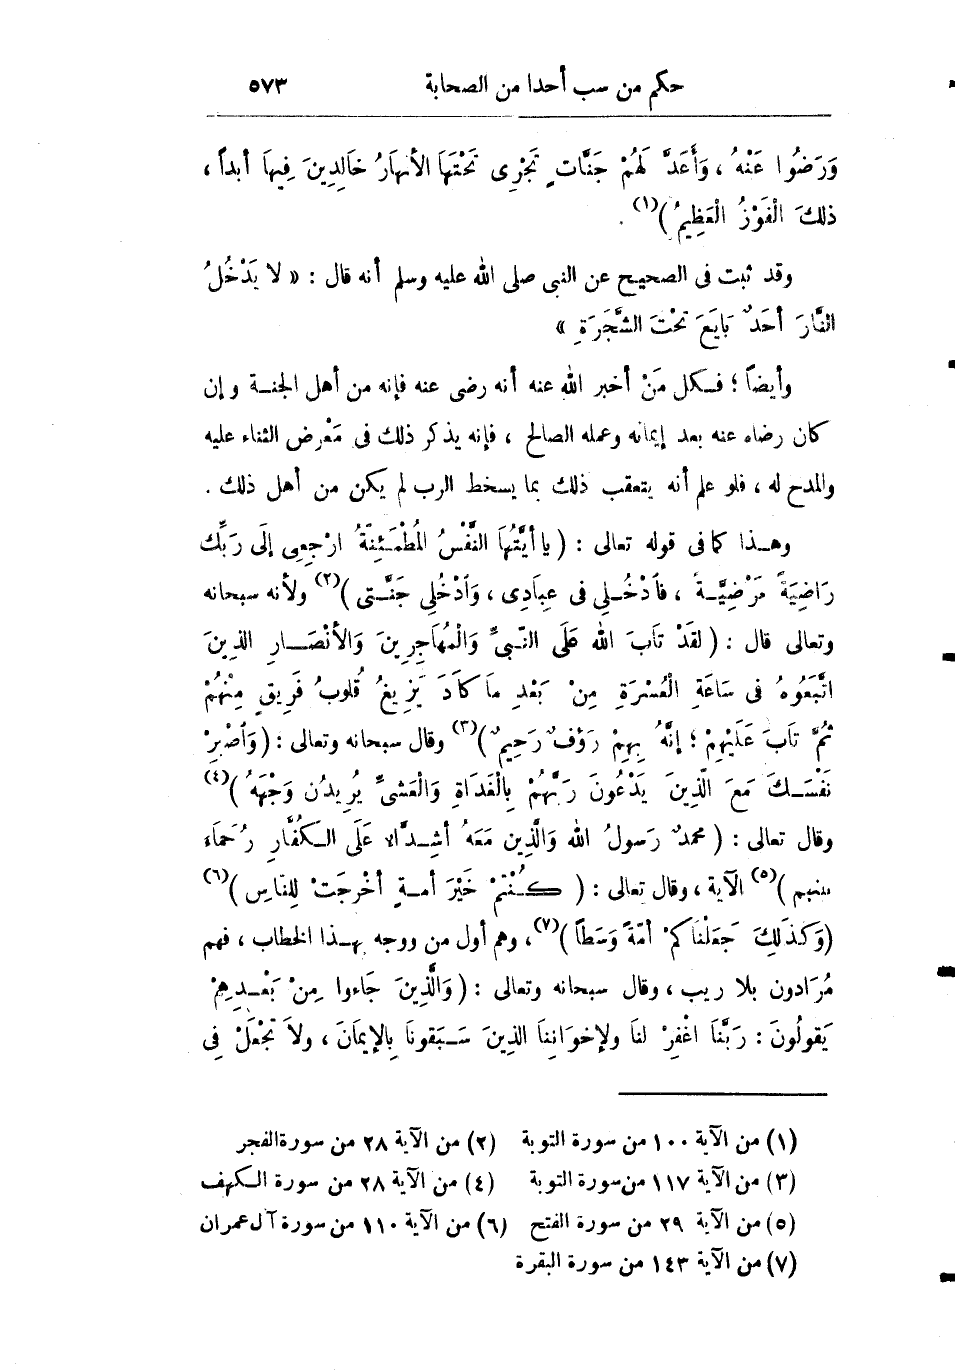 حكم من سب أحدا من الصحابة ٥٧٣
وَرَضُوا عَنْهُ ، وَأَعَدَّ لَهُمْ جَنَّاتٍ تَجْرِى تَحْتَهَا الأنهارُ خَالِدِينَ فِيهاَ أبداً ،
ذلكَ الْفَوْزُ الْعَظِيمُ )(١) .
وقد ثبت فى الصحيح عن النبى صلى الله عليه وسلم أنه قال : « لا يَدْخُلُ
النَّارَ أحَدٌ بَايَعَ تَحْتَ الشَّجَرَةِ »
وأيضاً ؛ فكل مَنْ أخبر الله عنه أنه رضى عنه فإنه من أهل الجنة وإن
كان رضاه عنه بعد إيمانه وعمله الصالح ، فإنه يذكر ذلك فى مَعْرِض الثناء عليه
والمدح له ، فلو علم أنه يتعقب ذلك بما يسخط الرب لم يكن من أهل ذلك .
وهذا كما فى قوله تعالى : ( يا أيَّتُها النَّفْسُ المُطْمَئِنَّةُ ارْجِعِى إلَى رَبِّك
رَاضِيَةً مَرْضِيَّةً ، فادْخُلِى فى عِبَادِى ، وَادْخُلِى جَنَّتِى )(٢) ولأنه سبحانه
وتعالى قال : ( لقَدْ تاَبَ الله عَلَى النَّبِىِّ وَالْمُهَاجِرِينَ وَالأنْصَارِ الذِينَ
اتَّبَعُوهُ فى سَاعَةِ الْعُسْرَةِ مِنْ بَعْدِ مَا كَادَ يَزِيغُ قُلوبُ فَرِيقٍ مِنْهُمْ
ثُمَّ تاَبَ عَلَيْهِمْ ؛ إنَّهُ بِهِمْ رَؤفٌ رَحِيمٌ )(٣) وقال سبحانه وتعالى : ( وَاصْبِرْ
نَفْسَكَ مَعَ الَّذِينَ يَدْعُونَ رَبَّهُمْ بِالْغَدَاةِ وَالْعَشِىِّ يُرِيدُن وَجْهَهُ )(٤)
وقال تعالى : ( محمدٌ رَسولُ الله وَالَّذِين مَعَهُ أشِدَّاءُ عَلَى الكُفَّارِ رُحَمَاء
بينهم )(٥) الآية ، وقال تعالى : ( كُنْتمْ خَيْرَ أمةٍ أخْرِجَتْ لِلنَّاسِ )(٦)
( وَكَذلِكَ جَعَلْنَاكمْ أمَّةً وَسَطاً )(٧) ، وهم أول من ووجه بهذا الخطاب ، فهم
مُرَادون بلا ريب ، وقال سبحانه وتعالى : ( وَالَّذِينَ جَاءوا مِنْ بَعْدِهِمْ
يَقولُونَ : رَبَّنَا اغْفِرْ لنا ولإخوَاننِا الذِينَ سَبَقونا بِالإيمَانِ ، ولاَ تَجْعَلْ فِى
(١) من الآية ١٠٠ من سورة التوبة (٢) من الآية ٢٨ من سورة الفجر
(٣) من الآية ١١٧ من سورة التوبة (٤) من الآية ٢٨ من سورة الكهف
(٥) من الآية ٢٩ من سورة الفتح (٦) من الآية ١١٠ من سورة آل عمران
(٧) من الآية ١٤٣ من سورة البقرة